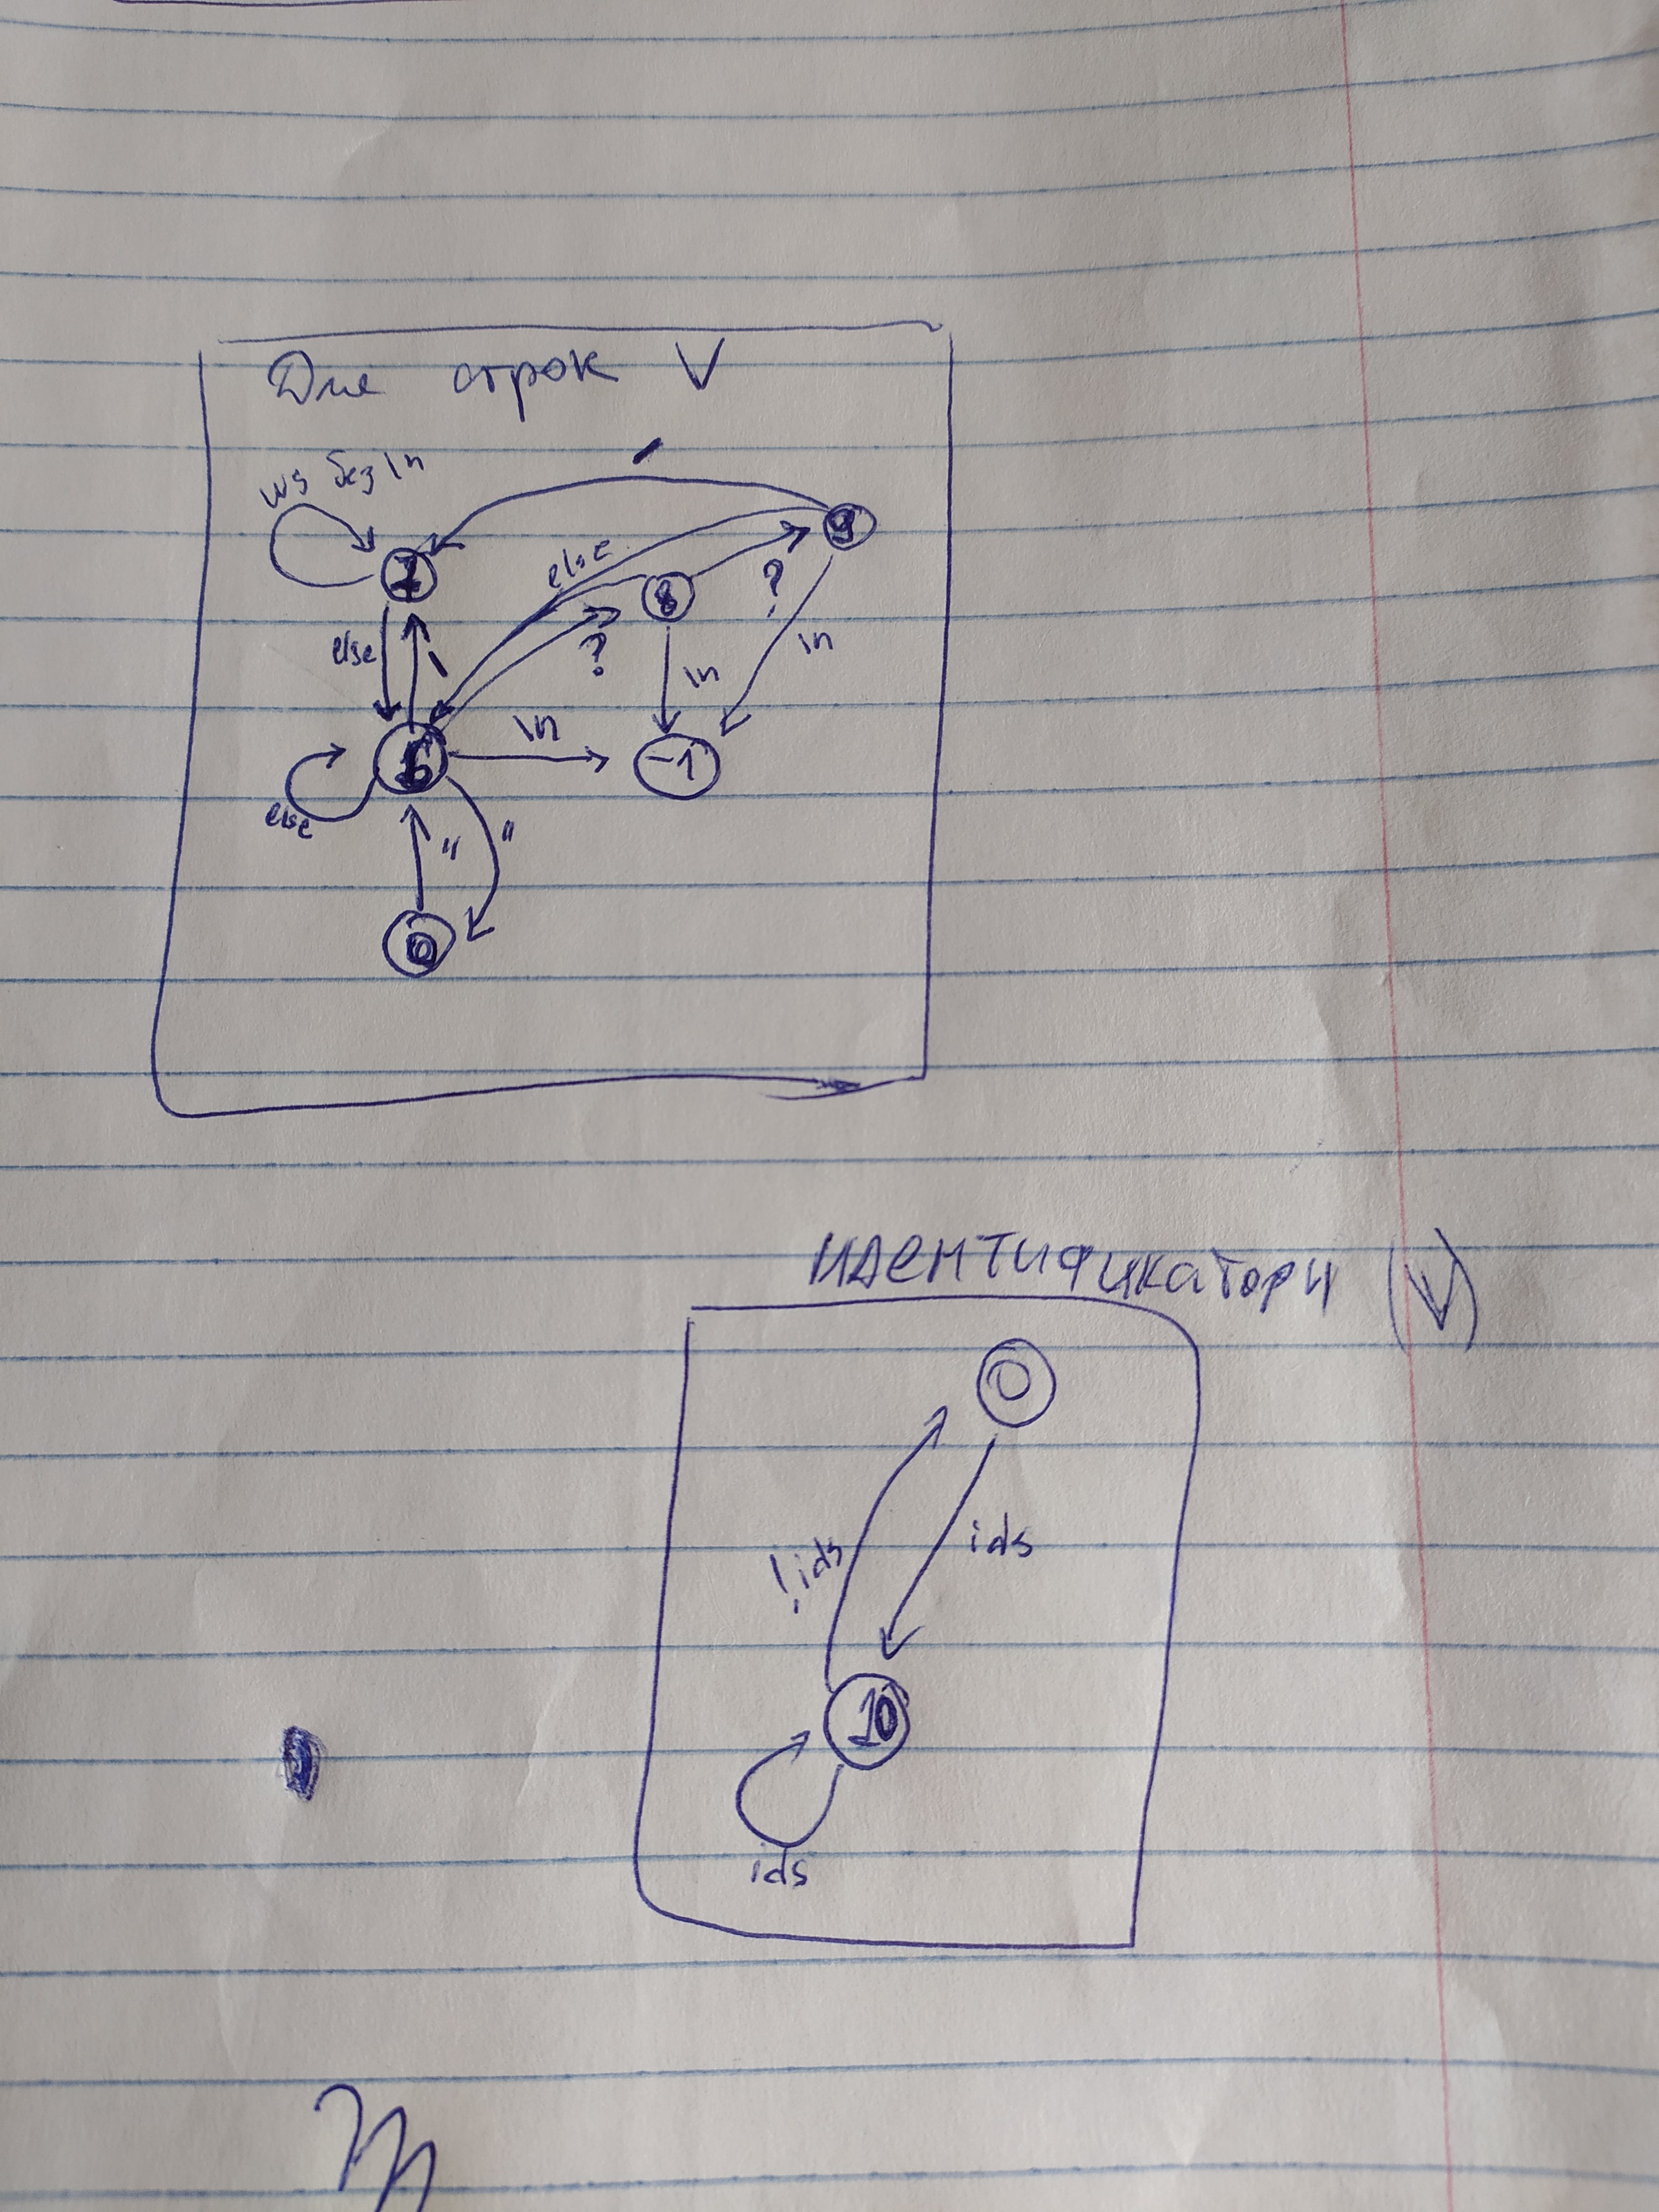 Для строк V
ws без \n
else
?
9
7
8
else
\
?
\n
\n
\n
6
-1
else
"
"
0
идентификаторы (V)
0
!ids
ids
10
ids